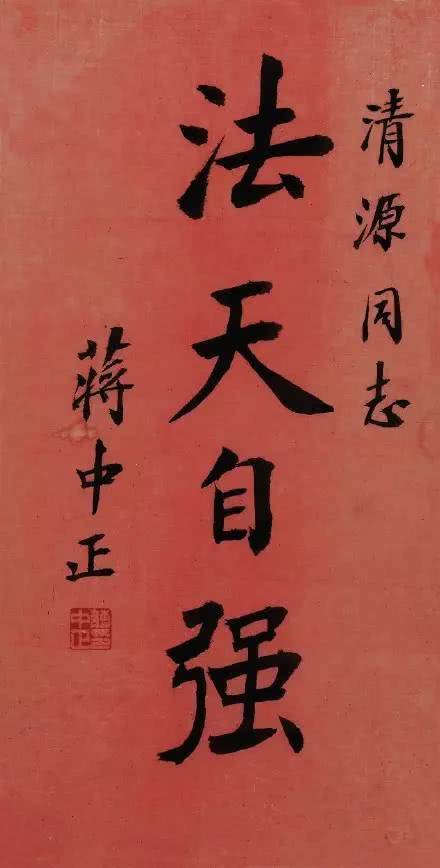 清源同志
法天自强
蒋中正